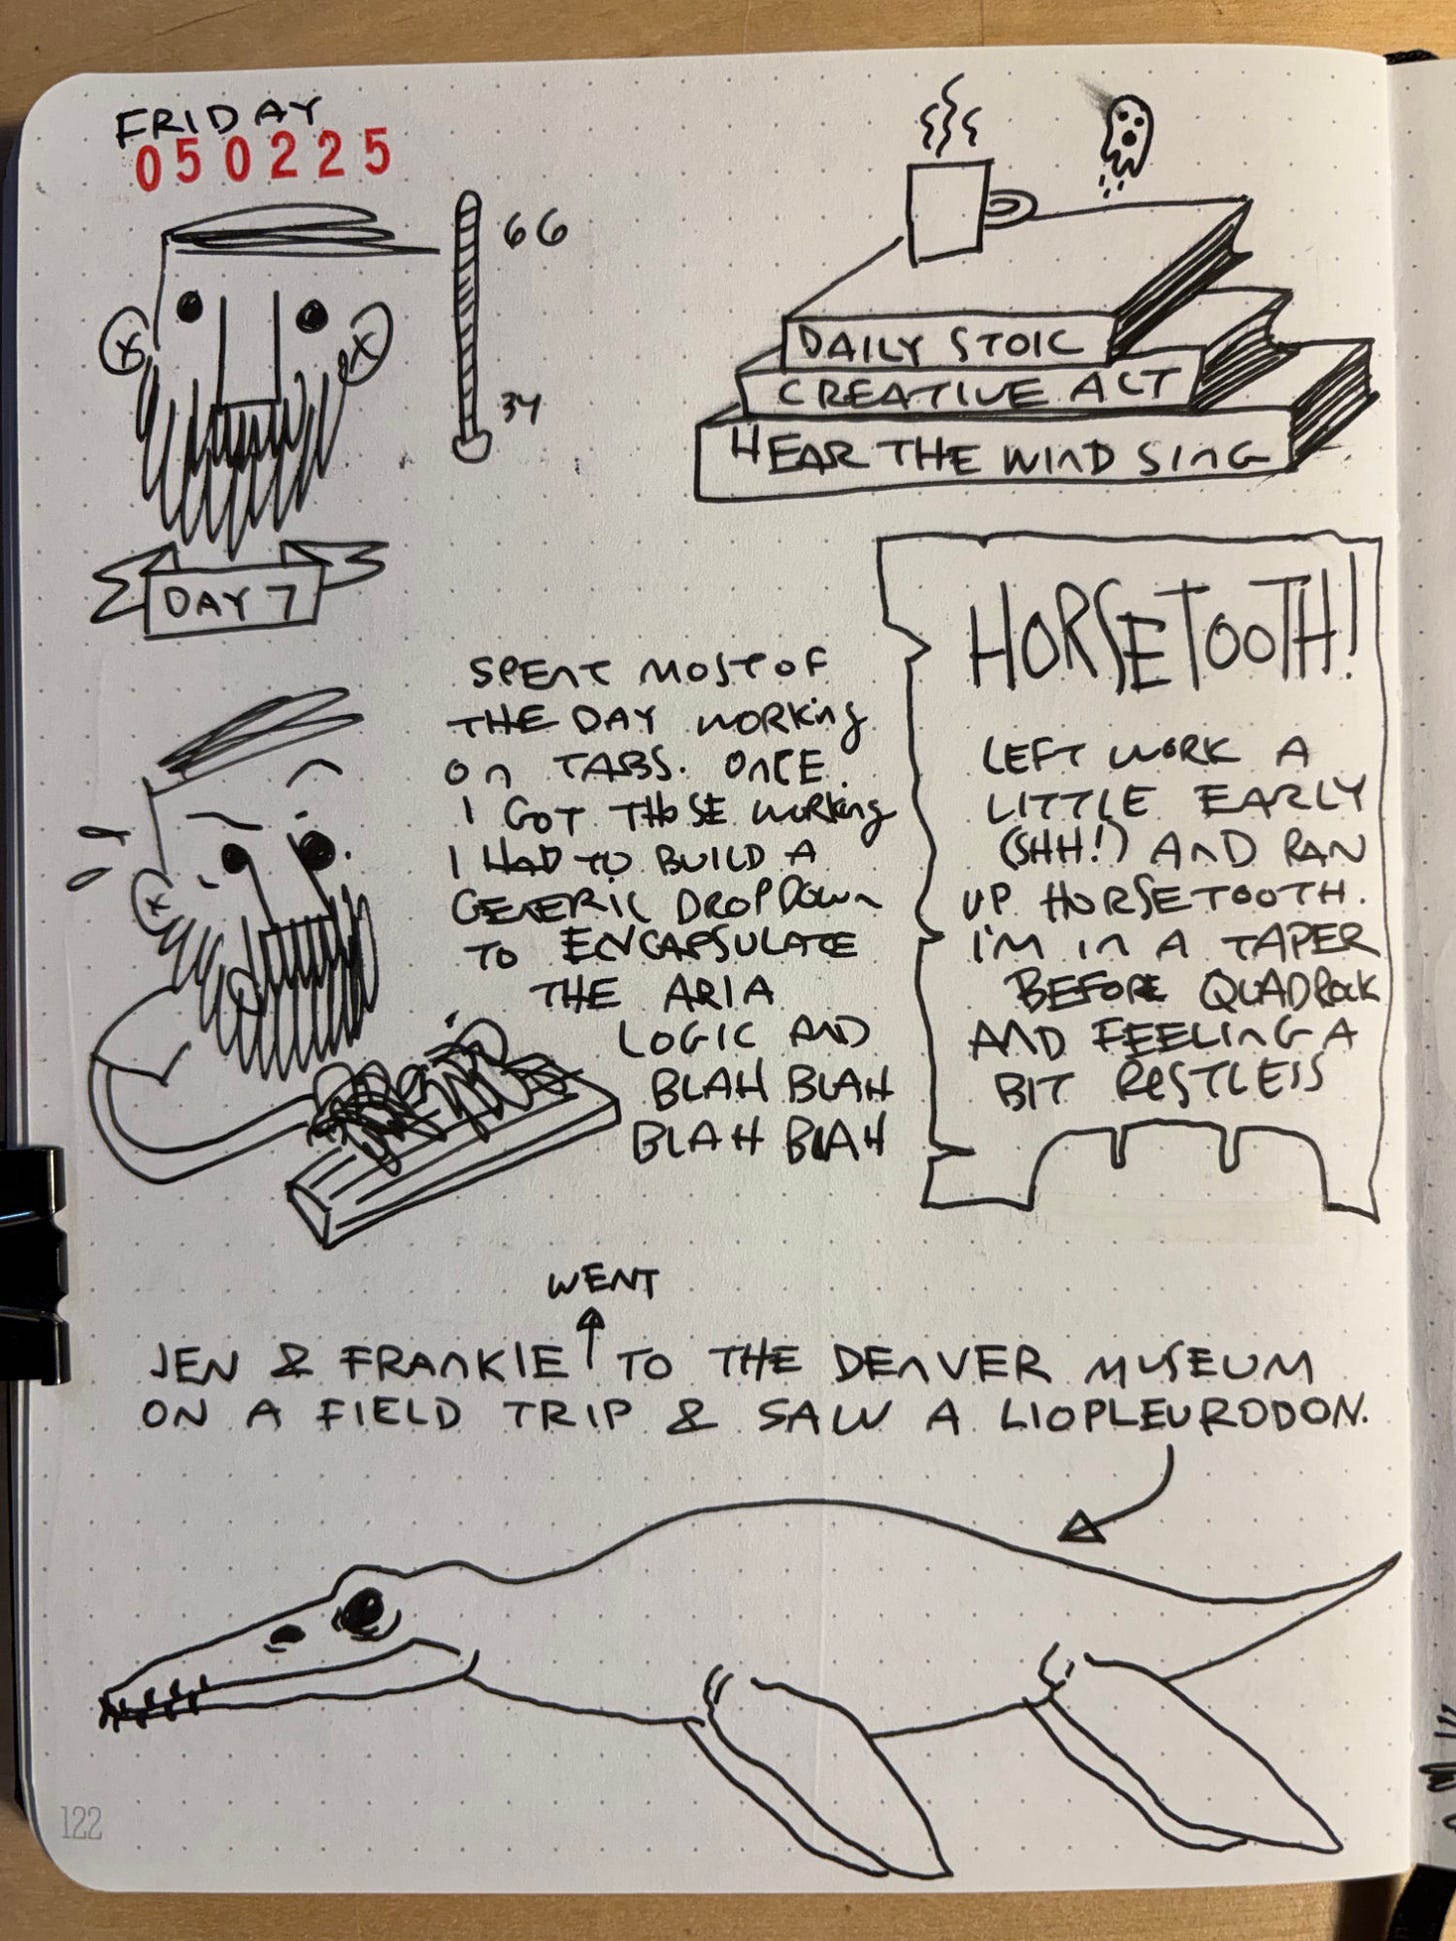 FRIDAY
050225
66
34
DAILY STOIC
CREATIVE ACT
HEAR THE WIND SING
DAY 7
SPENT MOST OF
THE DAY WORKING
ON TABS. ONCE
I GOT THOSE WORKING
I HAD TO BUILD A
GENERIC DROPDOWN
TO ENCAPSULATE
THE ARIA
LOGIC AND
BLAH BLAH
BLAH BLAH
HORSETOOTH!
LEFT WORK A
LITTLE EARLY
(SHH!) AND RAN
UP HORSETOOTH.
I'M IN A TAPER
BEFORE QUADROCK
AND FEELING A
BIT RESTLESS
WENT
JEN & FRANKIE TO THE DENVER MUSEUM
ON A FIELD TRIP & SAW A LIOPLEURODON.
122